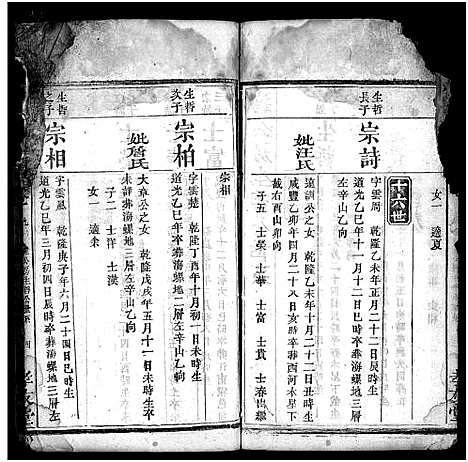 女一 適夏
十六世
生哲長子
宗詩
字雲周 乾隆乙未年正月二十二日辰時生
道光乙巳年十一月十二日時卒葬海螺地三層
左辛山乙向
妣汪氏
遠調公之女 乾隆乙未年十月二十二日丑時生
咸豐乙卯年四月二十八日亥時卒葬西河水星下
戴右酉山卯向
子五 士榮 士華 士富 士貴 士春出繼
宗相
生哲次子
宗柏
字雲楚 乾隆丁酉年十月初一日未時生
道光乙巳年卒葬海螺地二層左辛山乙向
妣詹氏
大章公之女 乾隆戊戌年五月十一日未時生卒
未詳葬海螺地三層左辛山乙向
子二 士洋 士漢
女一 適余
生哲之子
宗相
字雲風 乾隆庚子年六月二十四日巳時生
道光乙巳年三月初四日辰時卒葬海螺地三層左